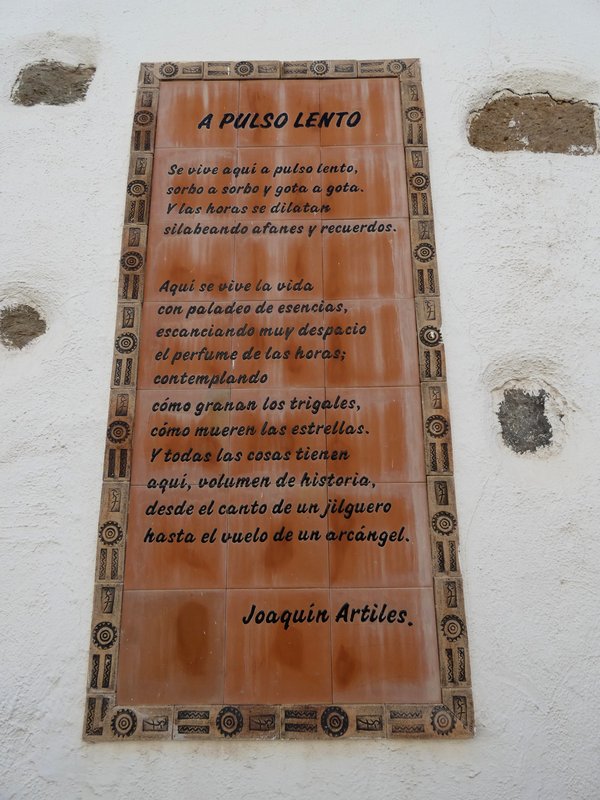 A PULSO LENTO
Se vive aquí a pulso lento,
sorbo a sorbo y gota a gota.
Y las horas se dilatan
silabeando afanes y recuerdos.
Aquí se vive la vida
con paladeo de esencias,
escanciando muy despacio
el perfume de las horas;
contemplando
cómo granan los trigales,
cómo mueren las estrellas.
Y todas las cosas tienen
aquí, volumen de historia,
desde el canto de un jilguero
hasta el vuelo de un arcángel.
Joaquín Artiles.